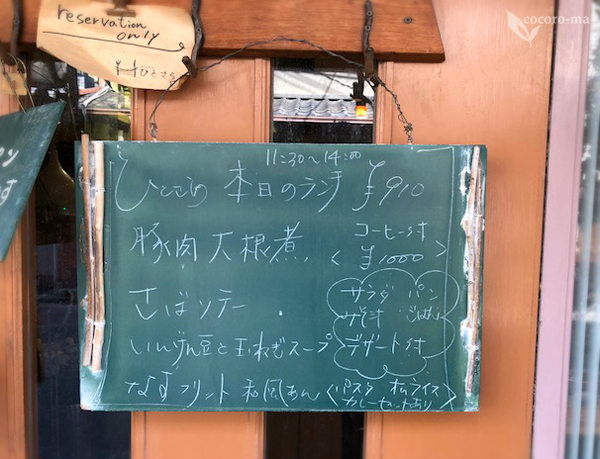 cocoro-ma
reservation
only
ひとさら
11:30〜14:00
ひとさら 本日のランチ ¥910
豚肉大根煮
コーヒー付
<¥1000>
さばソテー
サラダ パン
みそ汁 ごはん
いんげん豆と玉ねぎスープ
デザート付
なすフリット 和風あん
<パスタ オムライス
カレーセットあり>